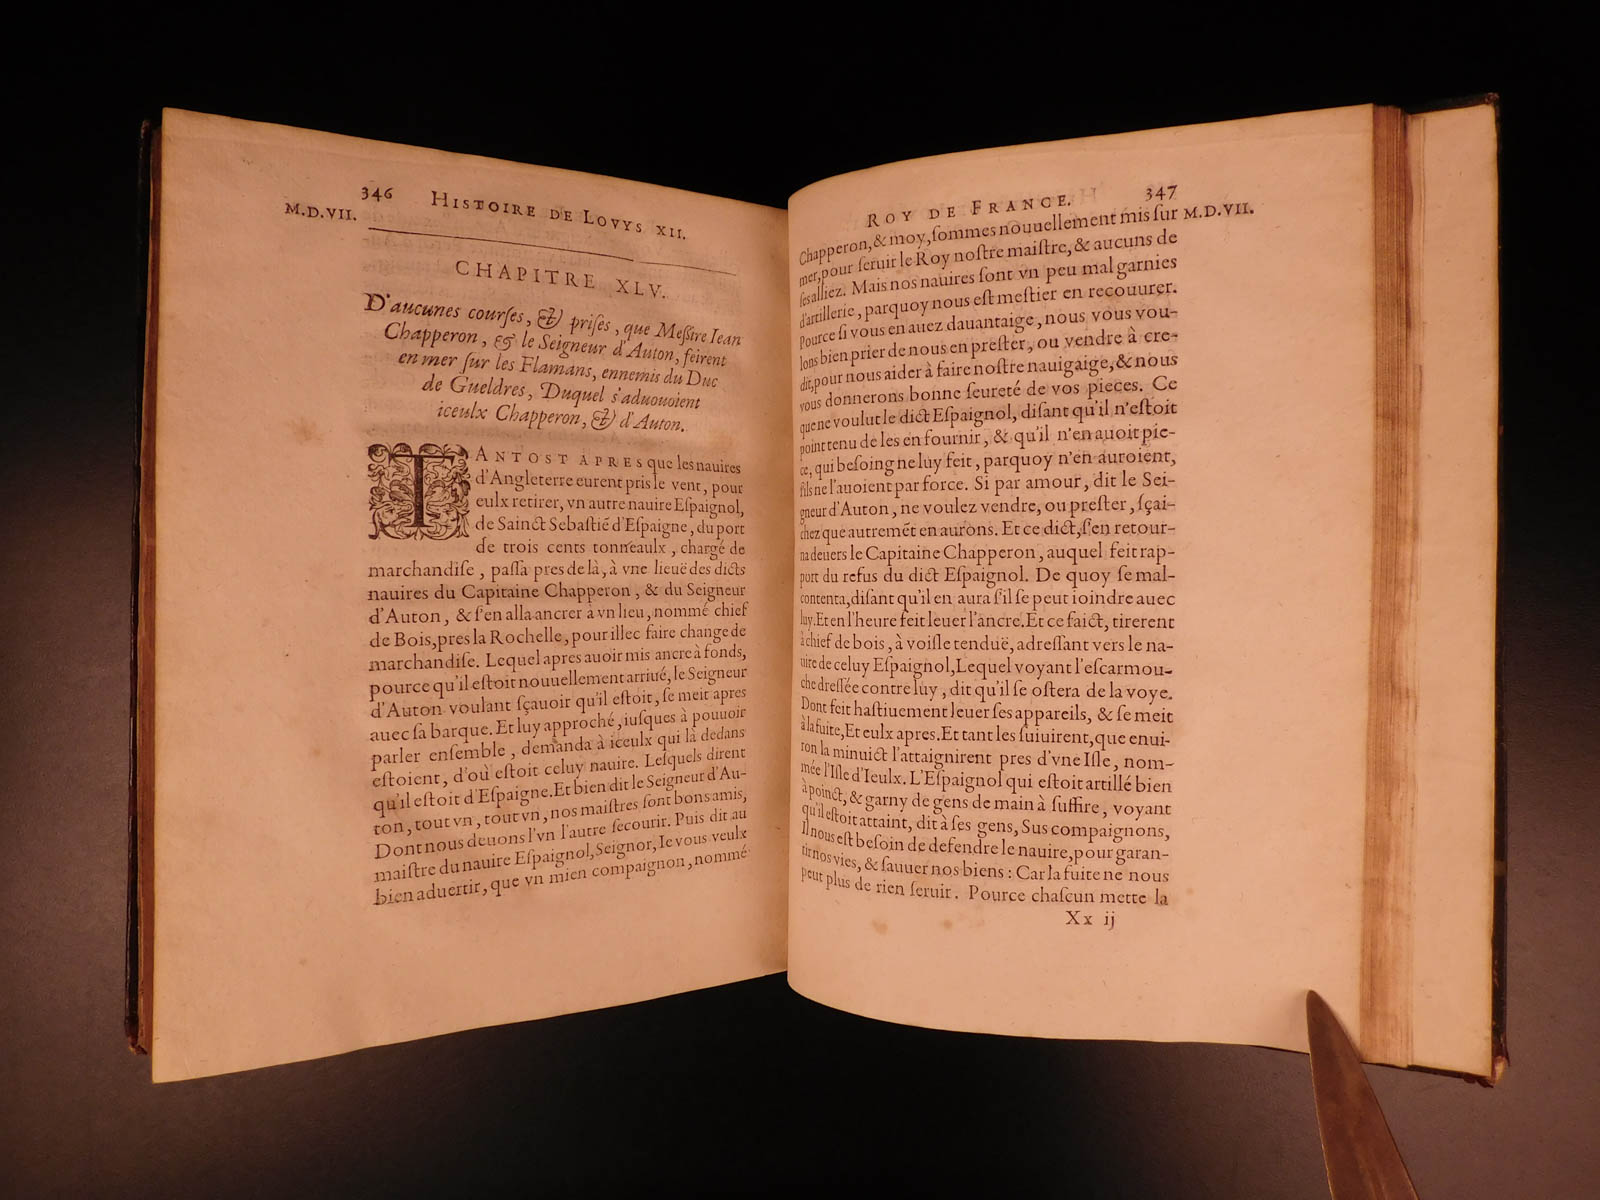 346 HISTOIRE DE LOVYS XII.
M.D.VII.
CHAPITRE XLV.
D'aucunes courſes, & priſes, que Meſſire Iean
Chapperon, & le Seigneur d'Auton, feirent
en mer ſur les Flamans, ennemis du Duc
de Gueldres, Duquel s'aduouoient
iceulx Chapperon, & d'Auton.
TANTOST APRES que les nauires
d'Angleterre eurent pris le vent, pour
eulx retirer, vn autre nauire Eſpaignol,
de Sainct Sebaſtiē d'Eſpaigne, du port
de trois cents tonneaulx, chargé de
marchandiſe, paſſa pres de là, à vne lieuë des dicts
nauires du Capitaine Chapperon, & du Seigneur
d'Auton, & ſ'en alla ancrer à vn lieu, nommé chief
de Bois, pres la Rochelle, pour illec faire change de
marchandiſe. Lequel apres auoir mis ancre à fonds,
pource qu'il eſtoit nouuellement arriué, le Seigneur
d'Auton voulant ſçauoir qu'il eſtoit, ſe meit apres
auec ſa barque. Et luy approché, iuſques à pouuoir
parler enſemble, demanda à iceulx qui là dedans
eſtoient, d'où eſtoit celuy nauire. Leſquels dirent
qu'il eſtoit d'Eſpaigne. Et bien dit le Seigneur d'Au-
ton, tout vn, tout vn, nos maiſtres ſont bons amis,
Dont nous deuons l'vn l'autre ſecourir. Puis dit au
maiſtre du nauire Eſpaignol, Seignor, Ie vous veulx
bien aduertir, que vn mien compaignon, nommé
ROY DE FRANCE. 347
M.D.VII.
Chapperon, & moy, ſommes nouuellement mis ſur
mer, pour ſeruir le Roy noſtre maiſtre, & aucuns de
ſes alliez. Mais nos nauires ſont vn peu mal garnies
d'artillerie, parquoy nous eſt meſtier en recouurer.
Pource ſi vous en auez dauantaige, nous vous vou-
lons bien prier de nous en preſter, ou vendre à cre-
dit, pour nous aider à faire noſtre nauigaige, & nous
vous donnerons bonne ſeureté de vos pieces. Ce
que ne voulut le dict Eſpaignol, diſant qu'il n'eſtoit
point tenu de les en fournir, & qu'il n'en auoit pie-
ce, qui beſoing ne luy feit, parquoy n'en auroient,
ſ'ils ne l'auoient par force. Si par amour, dit le Sei-
gneur d'Auton, ne voulez vendre, ou preſter, ſçai-
chez que autremēt en aurons. Et ce dict, ſ'en retour-
na deuers le Capitaine Chapperon, auquel feit rap-
port du refus du dict Eſpaignol. De quoy ſe mal-
contenta, diſant qu'il en aura ſ'il ſe peut ioindre auec
luy. Et en l'heure feit leuer l'ancre. Et ce faict, tirerent
à chief de bois, à voiſle tenduë, adreſſant vers le na-
uire de celuy Eſpaignol, Lequel voyant l'eſcarmou-
che dreſſée contre luy, dit qu'il ſe oſtera de la voye.
Dont feit haſtiuement leuer ſes appareils, & ſe meit
à la fuite, Et eulx apres. Et tant les ſuiuirent, que enui-
ron la minuict l'attaignirent pres d'vne Iſle, nom-
mée l'Iſle d'Ieulx. L'Eſpaignol qui eſtoit artillé bien
à poinct, & garny de gens de main à ſuffire, voyant
qu'il eſtoit attaint, dit à ſes gens, Sus compaignons,
Il nous eſt beſoin de defendre le nauire, pour garan-
tir nos vies, & ſauuer nos biens : Car la fuite ne nous
peut plus de rien ſeruir. Pource chaſcun mette la
Xx ij